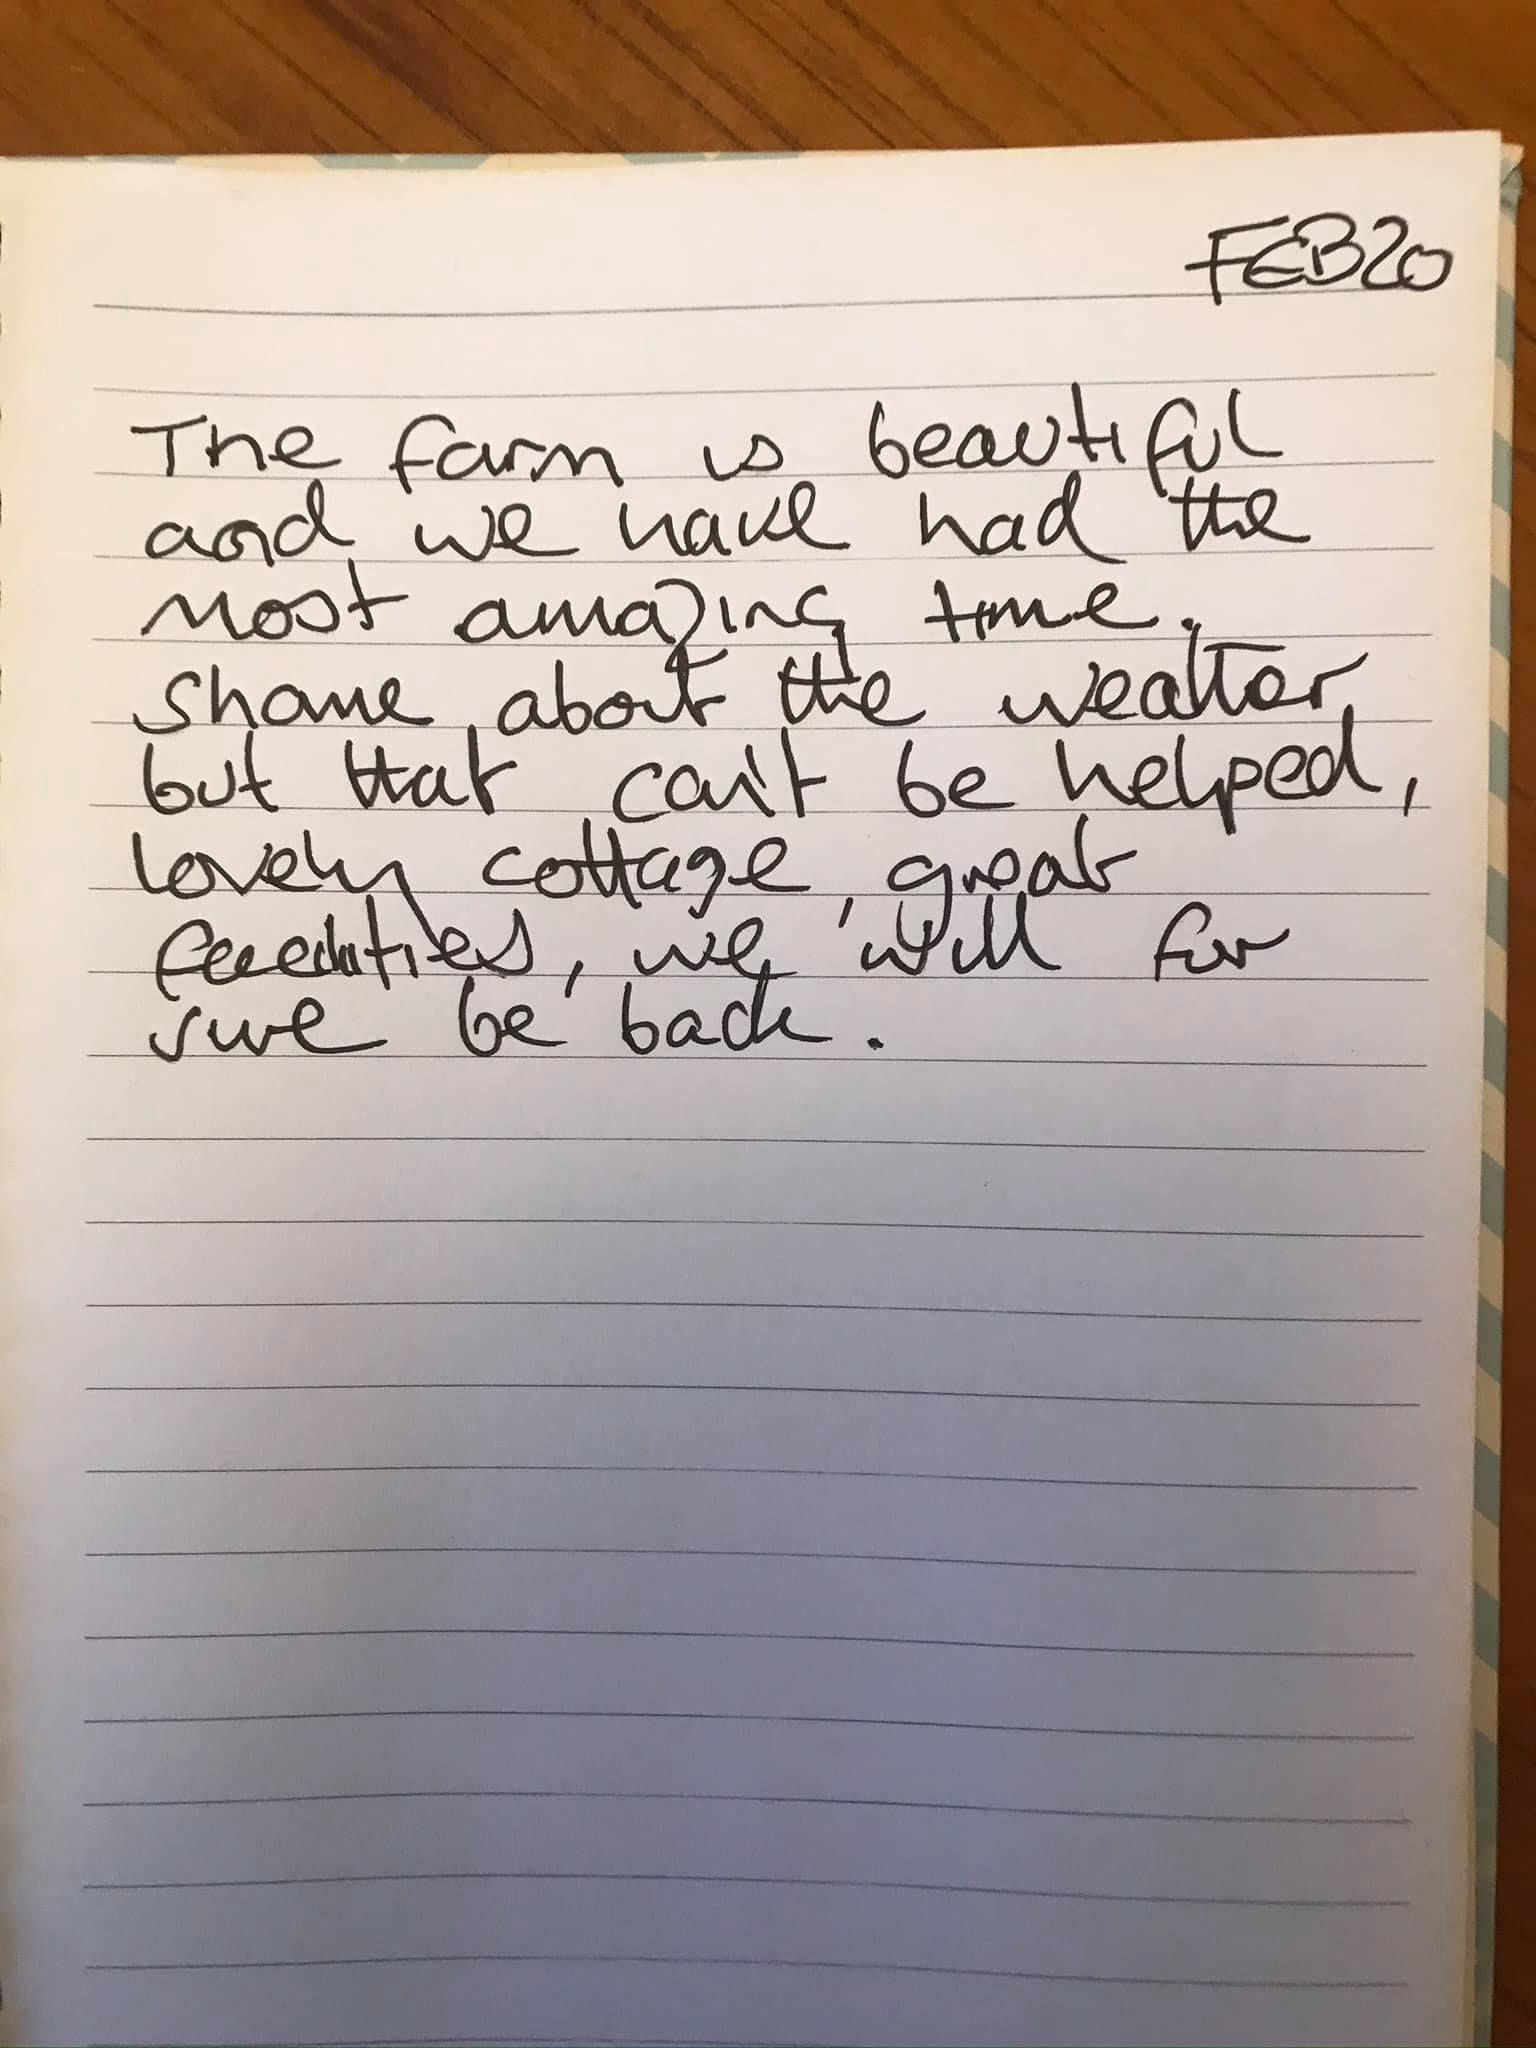 FEB20
The farm is beautiful
and we have had the
most amazing time.
Shame about the weather
but that can't be helped,
lovely cottage, great
, we will for
sure be back.